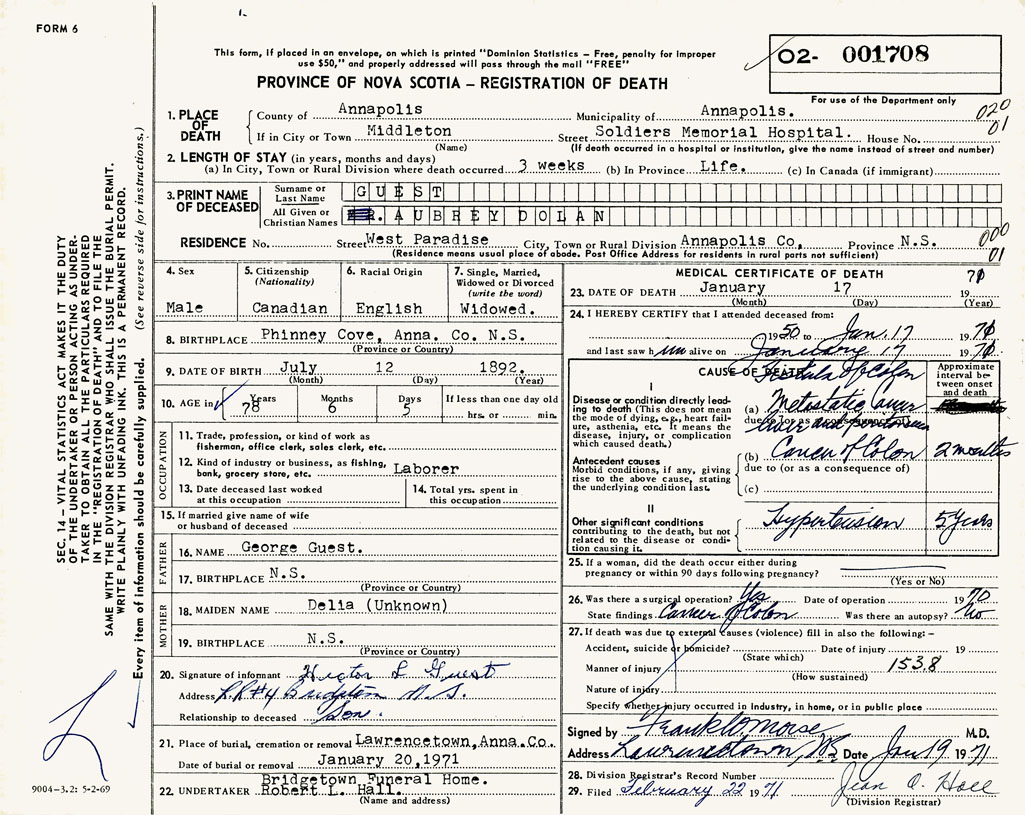 FORM 6
This form, if placed in an envelope, on which is printed "Dominion Statistics – Free, penalty for improper
use $50," and properly addressed will pass through the mail "FREE"
PROVINCE OF NOVA SCOTIA – REGISTRATION OF DEATH
02- 001708
For use of the Department only
020
01
1. PLACE OF DEATH
County of Annapolis Municipality of Annapolis.
If in City or Town Middleton Street Soldiers Memorial Hospital. House No.
(Name) (If death occurred in a hospital or institution, give the name instead of street and number)
2. LENGTH OF STAY (in years, months and days)
(a) In City, Town or Rural Division where death occurred 3 weeks (b) In Province Life. (c) In Canada (if immigrant)
3. PRINT NAME OF DECEASED
Surname or Last Name GUEST
All Given or Christian Names AUBREY DOLAN
RESIDENCE No. Street West Paradise City, Town or Rural Division Annapolis Co, Province N.S.
(Residence means usual place of abode. Post Office Address for residents in rural parts not sufficient)
000
01
4. Sex
Male
5. Citizenship
(Nationality)
Canadian
6. Racial Origin
English
7. Single, Married,
Widowed or Divorced
(write the word)
Widowed.
8. BIRTHPLACE Phinney Cove, Anna. Co. N.S.
(Province or Country)
9. DATE OF BIRTH July 12 1892.
(Month) (Day) (Year)
10. AGE in Years Months Days If less than one day old
78 6 5 hrs. or min.
OCCUPATION
11. Trade, profession, or kind of work as
fisherman, office clerk, sales clerk, etc.
12. Kind of industry or business, as fishing,
bank, grocery store, etc. Laborer
13. Date deceased last worked
at this occupation
14. Total yrs. spent in
this occupation
15. If married give name of wife
or husband of deceased
FATHER
16. NAME George Guest.
17. BIRTHPLACE N.S.
(Province or Country)
MOTHER
18. MAIDEN NAME Delia (Unknown)
19. BIRTHPLACE N.S.
(Province or Country)
20. Signature of informant Hector L Guest
Address R.R#4 Bridgeton N.S.
Relationship to deceased Son.
21. Place of burial, cremation or removal Lawrencetown, Anna.Co.
Date of burial or removal January 20,1971
Bridgetown Funeral Home.
22. UNDERTAKER Robert L. Hall.
(Name and address)
MEDICAL CERTIFICATE OF DEATH
23. DATE OF DEATH January 17 19 71
(Month) (Day) (Year)
24. I HEREBY CERTIFY that I attended deceased from:
1950 to Jan. 17 1971
and last saw him alive on January 17 1971
CAUSE OF DEATH
Approximate
interval be-
tween onset
and death
Fistula of Colon
I
Disease or condition directly lead-
ing to death (This does not mean
the mode of dying, e.g., heart fail-
ure, asthenia, etc. It means the
disease, injury, or complication
which caused death.)
(a) Metastatic Cancer
due to (or as a consequence of)
liver and peritoneum
Antecedent causes
Morbid conditions, if any, giving
rise to the above cause, stating
the underlying condition last.
(b) Cancer of Colon 2 months
due to (or as a consequence of)
(c)
II
Other significant conditions
contributing to the death, but not
related to the disease or condi-
tion causing it.
Hypertension 5 Years
25. If a woman, did the death occur either during
pregnancy or within 90 days following pregnancy?
(Yes or No)
26. Was there a surgical operation? Yes Date of operation 1970
State findings Cancer of Colon Was there an autopsy? No
27. If death was due to external causes (violence) fill in also the following:–
Accident, suicide or homicide? Date of injury 19
(State which)
Manner of injury 153.8
(How sustained)
Nature of injury
Specify whether injury occurred in industry, in home, or in public place
Signed by Frank G Morse M.D.
Address Lawrencetown, NS Date Jan 19 1971
28. Division Registrar's Record Number
29. Filed February 22 1971 Jean O. Hall
(Division Registrar)
SEC. 14 – VITAL STATISTICS ACT MAKES IT THE DUTY
OF THE UNDERTAKER OR PERSON ACTING AS UNDER-
TAKER TO OBTAIN ALL THE PARTICULARS REQUIRED
IN THE "REGISTRATION OF DEATH" AND TO FILE THE
SAME WITH THE DIVISION REGISTRAR WHO SHALL ISSUE THE BURIAL PERMIT.
WRITE PLAINLY WITH UNFADING INK. THIS IS A PERMANENT RECORD.
Every item of information should be carefully supplied. (See reverse side for instructions.)
9004-3.2: 5-2-69